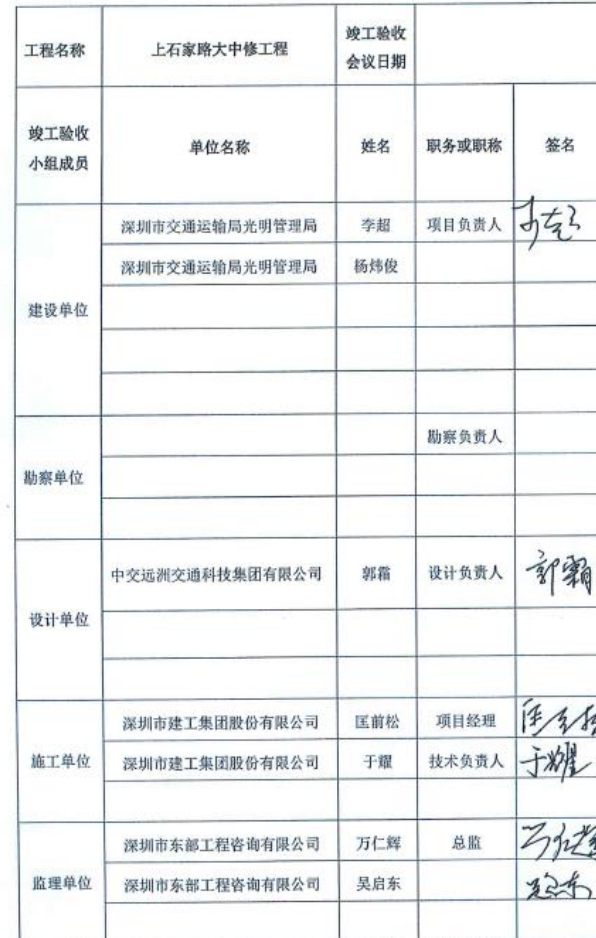 工程名称 上石家路大中修工程 竣工验收
会议日期
竣工验收
小组成员 单位名称 姓名 职务或职称 签名
建设单位
深圳市交通运输局光明管理局 李超 项目负责人 李超
深圳市交通运输局光明管理局 杨炜俊
勘察单位
勘察负责人
设计单位
中交远洲交通科技集团有限公司 郭霜 设计负责人 郭霜
施工单位
深圳市建工集团股份有限公司 匡前松 项目经理 匡前松
深圳市建工集团股份有限公司 于耀 技术负责人 于耀
监理单位
深圳市东部工程咨询有限公司 万仁辉 总监 万仁辉
深圳市东部工程咨询有限公司 吴启东 吴启东